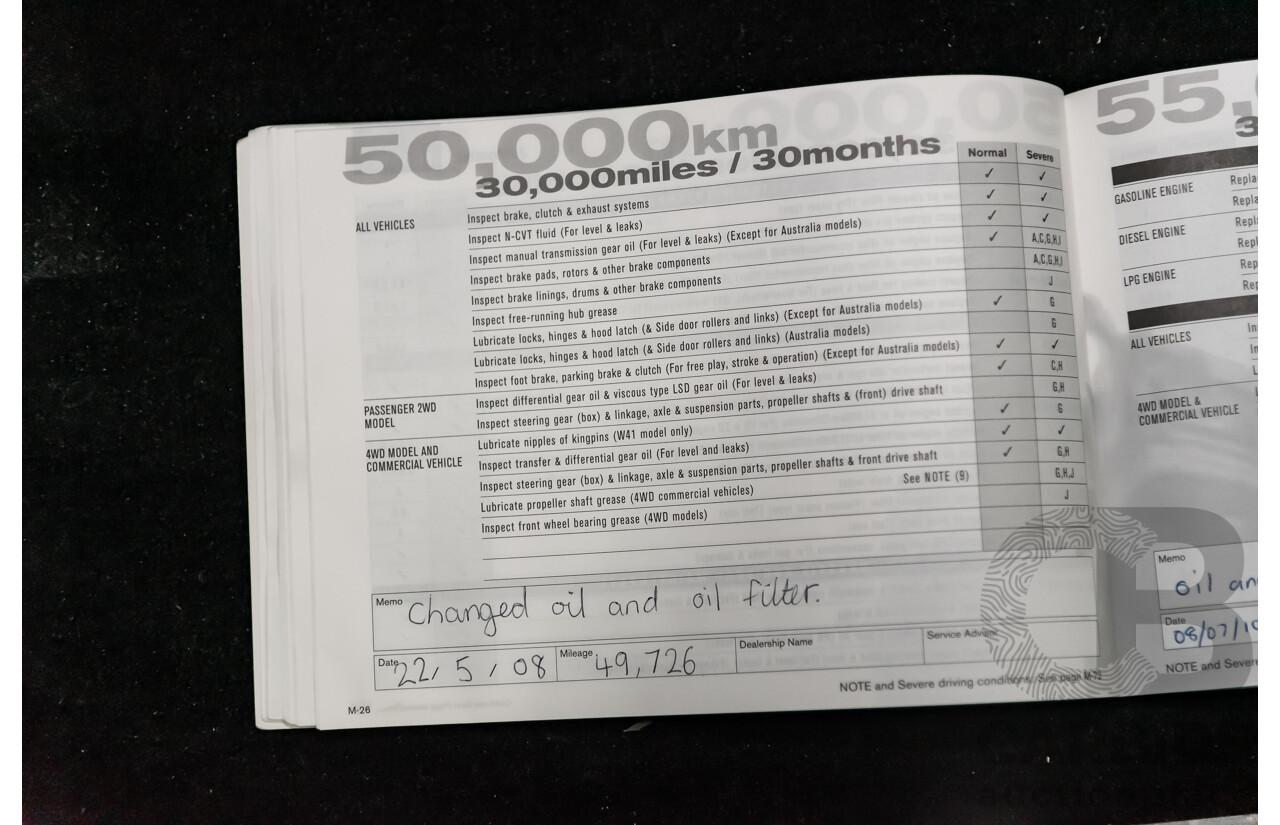 50,000km
30,000miles / 30months
Normal Severe
ALL VEHICLES
Inspect brake, clutch & exhaust systems ✓ ✓
Inspect N-CVT fluid (For level & leaks) ✓ ✓
Inspect manual transmission gear oil (For level & leaks) (Except for Australia models) ✓ ✓
Inspect brake pads, rotors & other brake components ✓ A,C,G,H,I
Inspect brake linings, drums & other brake components A,C,G,H,I
Inspect free-running hub grease J
Lubricate locks, hinges & hood latch (& Side door rollers and links) (Except for Australia models) ✓ G
Lubricate locks, hinges & hood latch (& Side door rollers and links) (Australia models) G
Inspect foot brake, parking brake & clutch (For free play, stroke & operation) (Except for Australia models) ✓ ✓
PASSENGER 2WD
MODEL
Inspect differential gear oil & viscous type LSD gear oil (For level & leaks) ✓ C,H
Inspect steering gear (box) & linkage, axle & suspension parts, propeller shafts & (front) drive shaft G,H
4WD MODEL AND
COMMERCIAL VEHICLE
Lubricate nipples of kingpins (W41 model only) ✓ G
Inspect transfer & differential gear oil (For level and leaks) ✓ ✓
Inspect steering gear (box) & linkage, axle & suspension parts, propeller shafts & front drive shaft ✓ G,H
Lubricate propeller shaft grease (4WD commercial vehicles) See NOTE (9) G,H,J
Inspect front wheel bearing grease (4WD models) J
Memo Changed oil and oil filter.
Date 22/5/08 Mileage 49,726 Dealership Name Service Advisor
NOTE and Severe driving conditions: See page M-72
M-26
55,
3
GASOLINE ENGINE
DIESEL ENGINE
LPG ENGINE
ALL VEHICLES
4WD MODEL &
COMMERCIAL VEHICLE
Memo
oil
Date
08/07/10
NOTE and Severe